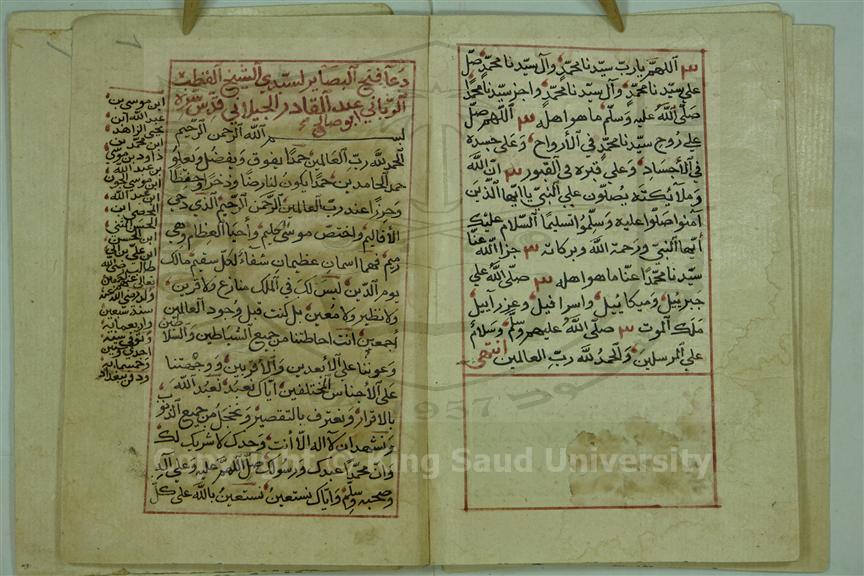 ٣ اللهم يارب سيدنا محمد وآل سيدنا محمد صل
على سيدنا محمد وآل سيدنا محمد واجز سيدنا محمدا
صلى الله عليه وسلم ما هو اهله ٣ اللهم صل
على روح سيدنا محمد في الأرواح وعلى جسده
في الأجساد وعلى قبره في القبور ٣ ان الله
وملائكته يصلون على النبي يا ايها الذين
آمنوا صلوا عليه وسلموا تسليما السلام عليك
أيها النبي ورحمة الله وبركاته ٣ جزا الله عنا
سيدنا محمدا عنا ما هو اهله ٣ صلى الله على
جبرئيل وميكائيل واسرافيل وعزرآئيل
ملك الموت ٣ صلى الله عليهم وسلم وسلام
على المرسلين والحمد لله رب العالمين انتهى
دعآ فتح البصاير لسيدي الشيخ القطب
الرباني عبد القادر الجيلاني قدس سره
ابو صالح
بسم الله الرحمن الرحيم
الحمد لله رب العالمين حمدا يفوق ويفضل ويعلو
حمد الحامدين حمدا يكون لنا رضا وذخرا وحفظا
وحرزا عند رب العالمين الرحمن الرحيم الذي دحى
الأقاليم واختص موسى الكليم وأحيا العظام وهي
رميم فهما اسمان عظيمان شفاء لكل سقيم مالك
يوم الدين ليس لك في الملك منازع ولا قرين
ولا نظير ولا معين بل كنت قبل وجود العالمين
أجمعين أنت احاطتنا من جميع الشياطين والسلاطين
وعوننا على الأبعدين والأقربين ووجهتنا
على الأجناس المختلفين اياك نعبد نعبد الله
بالاقرار ونعترف بالتقصير ونخجل من جميع الذنوب
ونشهد ان لا اله الا أنت وحدك لا شريك لك
وان محمدا عبدك ورسولك صل اللهم عليه وعلى آله
وصحبه وسلم واياك نستعين نستعين بالله على كل
ابن موسى بن
عبد الله ابن
يحيى الزاهد
ابن محمد بن
داود بن موسى
بن عبد الله
ابن موسى الجون
ابن عبد الله
المحض ابن
الحسن المثنى
ابن الحسن
ابن علي بن ابي
طالب رضي الله
تعالى عنهم
ولد رضي الله عنه
سنة سبعين
واربعمائة
وتوفي سنة
احدى وستين
وخمسمائة
ودفن ببغداد
Copyright © King Saud University
1957